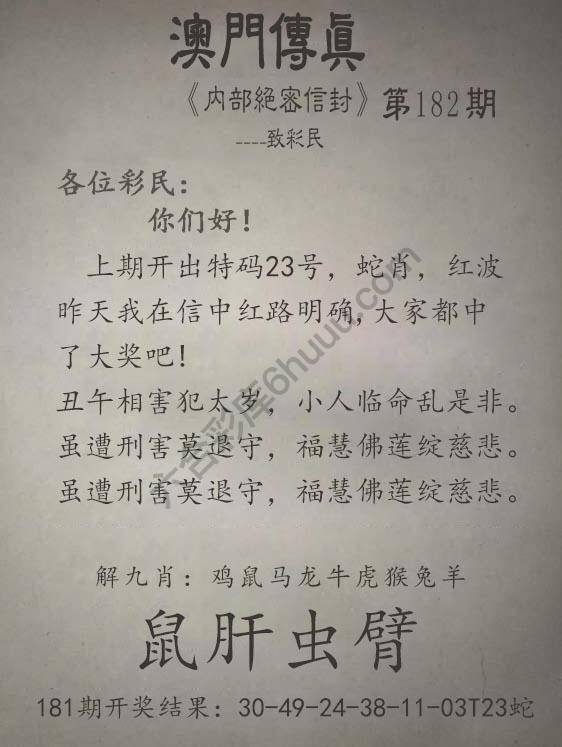 澳門傳眞
《内部絕密信封》第182期
----致彩民
各位彩民：
你们好！
上期开出特码23号，蛇肖，红波
昨天我在信中红路明确,大家都中
了大奖吧！
丑午相害犯太岁，小人临命乱是非。
虽遭刑害莫退守，福慧佛莲绽慈悲。
虽遭刑害莫退守，福慧佛莲绽慈悲。
解九肖：鸡鼠马龙牛虎猴兔羊
鼠肝虫臂
181期开奖结果：30-49-24-38-11-03T23蛇
六合彩库6huuu.com